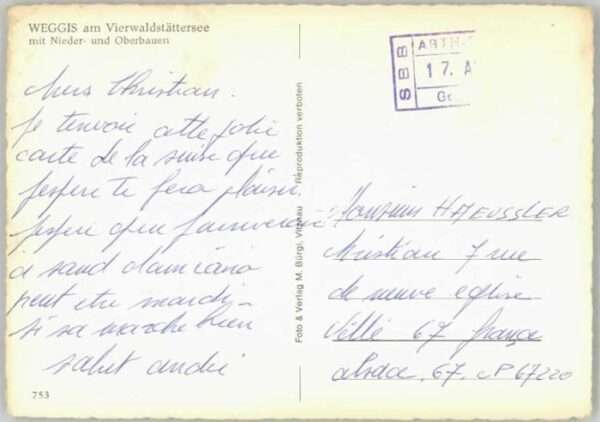 WEGGIS am Vierwaldstättersee
mit Nieder- und Oberbauen
chers Christian.
Je tenvoi cette jolie
carte de la suise que
jespere te fera plaisir.
jespere que jarriverai
a sand damiano
peut etre mardi -
si sa marche bien
salut andré
753
Foto & Verlag M. Bürgi, Vitznau Reproduktion verboten
SBB
ARTH-
17. A
Go
Monsieur HAEUSSLER
christian 7 rue
de neuve eglise
Villé 67 france
alsace. 67. CP 67220